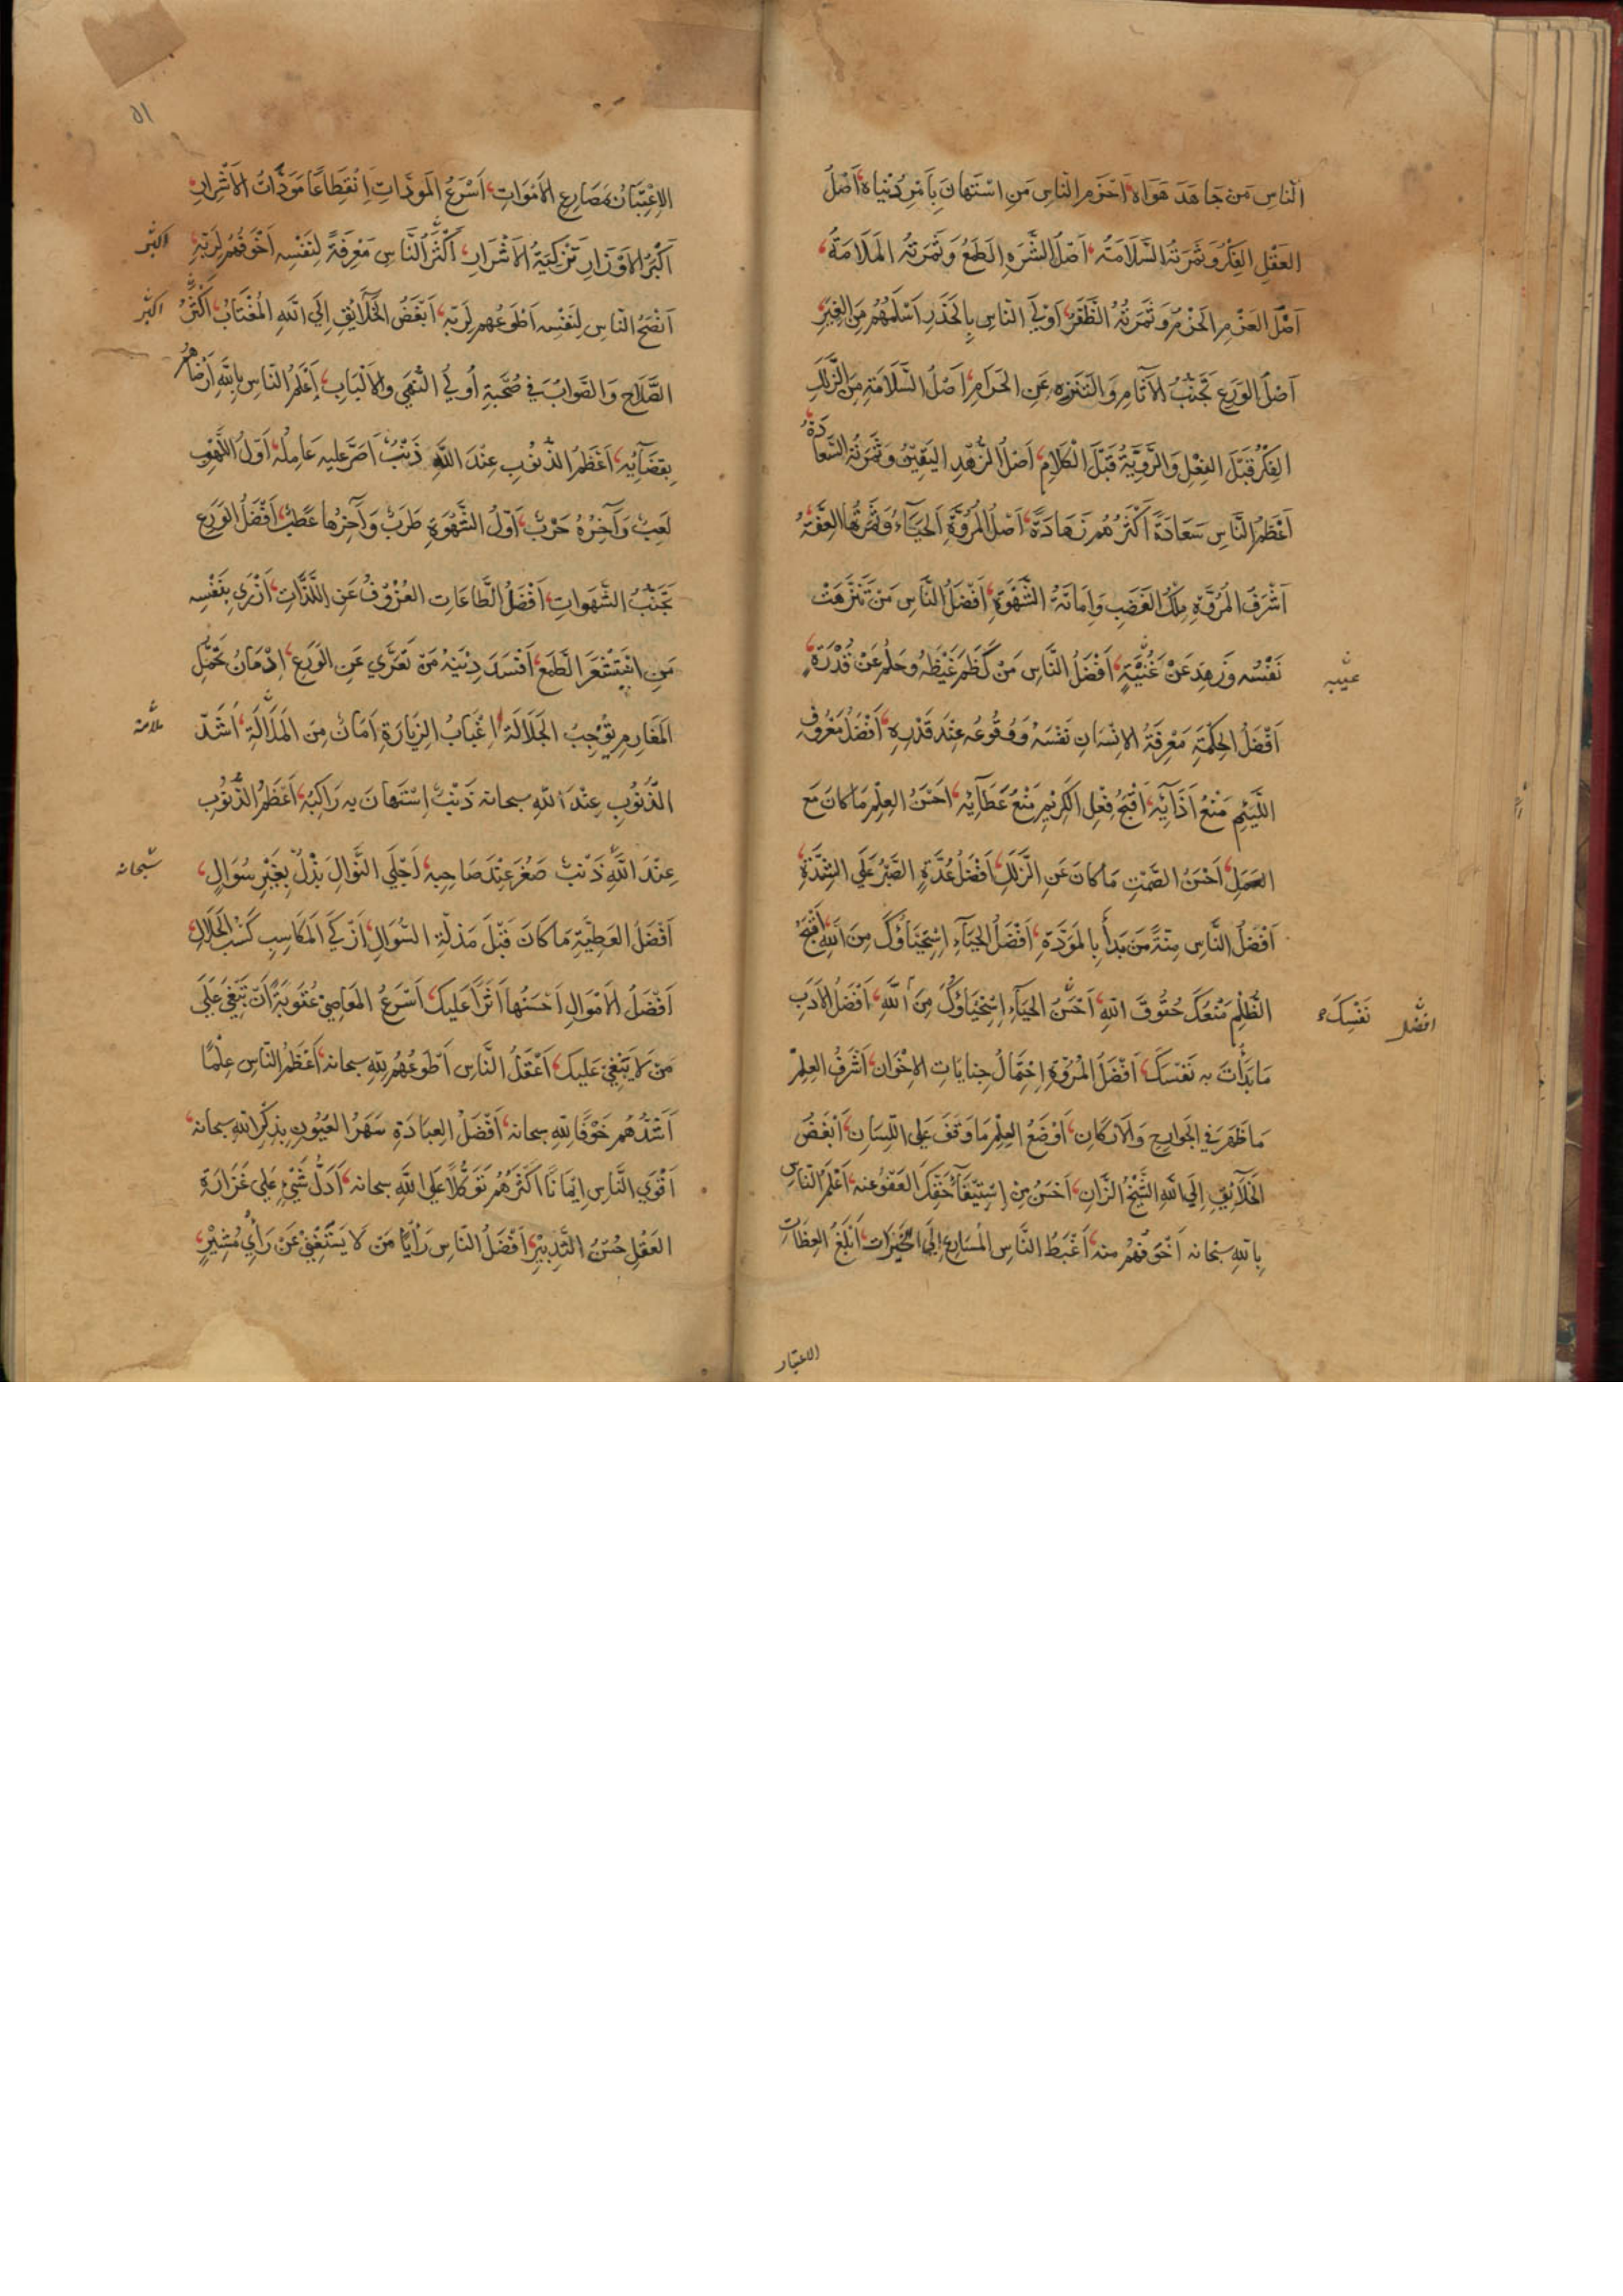 النَّاسِ مَن جَاهَدَ هَوَاهُ، اَحْزَمُ النَّاسِ مَنِ اسْتَهَانَ بِاَمْرِ دُنْيَاهُ، اَصْلُ
العَقْلِ الفِكْرُ وَثَمَرَتُهُ السَّلَامَةُ، اَصْلُ الشَّرَهِ الطَّمَعُ وَثَمَرَتُهُ المَلَامَةُ،
اَصْلُ العَزْمِ الحَزْمُ وَثَمَرَتُهُ الظَّفَرُ، اَوْلَي النَّاسِ بِالحَذَرِ اَسْلَمُهُمْ مِنَ الغِيَرِ
اَصْلُ الوَرَعِ تَجَنُّبُ الآثَامِ وَالتَنَزُه عَنِ الحَرَامِ، اَصْلُ السَّلَامَةِ مِنَ الزَّلَلِ
الفِكْرُ قَبْلَ الفِعْلِ وَالرَّوِيَّةُ قَبْلَ الْكَلَامِ، اَصْلُ الزُّهْدِ اليَقِيْنُ وَثَمَرَتُهُ السَّعَادَةُ
اَعْظَمُ النَّاسِ سَعَادَةً اَكْثَرُهُمْ زَهَادَةً، اَصْلُ المُرُوَّةِ اَلحَيَاءُ وَثَمَرَتُهَا العِفَّةُ
اَشْرَفُ المُرُوَّةِ مِلْكُ الغَضَبِ وَاِمَاتَةُ الشَّهْوَةِ، اَفْضَلُ النَّاسِ مَنْ تَنَزَّهَتْ
نَفْسُه وَزَهِدَ عَنْ غُنْيَةٍ، اَفْضَلُ النَّاسِ مَنْ كَظَمَ غَيْظَهُ وَحَلُمَ عَنْ قُدْرَةٍ،
عيبه
اَفْضَلُ الحِكْمَةِ مَعْرِفَةُ الاِنْسَانِ نَفْسَهُ وَوُقُوعُه عِنْدَ قَدْرِهِ، اَفْضَلُ مَعْرُوفِ
اللَّئِيْمِ مَنْعُ اَذَائِهِ، اَقْبَحُ فِعْلِ الكَرِيْمِ مَنْعُ عَطَآئِهِ، اَحْسَنُ العِلْمِ مَا كَانَ مَعَ
العَمَلِ، اَحْسَنُ الصَّمْتِ مَا كَانَ عَنِ الزَّلَلِ، اَفْضَلُ عُدَّةٍ الصَّبْرُ عَلَي الشِّدَّةِ،
اَفْضَلُ النَّاسِ مِنَّةً مَن بَدَأَ بِالمَوَدَّةِ، اَفْضَلُ الحَيَآءِ اِسْتِحْيَاؤُكَ مِنَ اللهِ، اَقْبَحُ
الظُّلْمِ مَنْعُكَ حُقُوقَ اللهِ، اَحْسَنُ الحَيَآءِ اِسْتِحْيَاؤُكَ مِنَ اللهِ، اَفْضَلُ الاَدَبِ
نَفْسِكَ
افضل
مَا بَدَأْتَ بِهِ نَفْسَكَ، اَفْضَلُ المُرُوَّةِ اِحْتِمَالُ جِنَايَاتِ الاِخْوَان، اَشْرَفُ العِلْمِ
مَا ظَهَرَ فِي الجَوَارِحِ وَالاَرْكَانِ، اَوْضَعُ العِلْمِ مَا وَقَفَ عَلَي اللِّسَانِ، اَبْغَضُ
الخَلَآئِقِ اِلَي اللهِ الشَّيْخُ الزَّانِ، اَحْسَنُ مِنْ اِسْتِيْفَآءِ حَقِّكَ العَفْوُ عَنْه، اَعْلَمُ النَّاسِ
بِاللهِ سبحانه اَخْوَفُهُمْ منه، اَغْبَطُ النَّاسِ المُسَارِعُ اِلَي الخَيْرَاتِ، اَبْلَغُ العِظَاتِ
الاعتبار
٥١
الاِعْتِبَارُ بِمَصَارِعِ الاَمْوَاتِ، اَسْرَعُ المَوَدَّاتِ اِنْقِطَاعًا مَوَدَّاتُ الاَشْرَارِ،
اَكْبَرُ الاَوْزَارِ تَزْكِيَةُ الاَشْرَارِ، اَكْثَرُ النَّاسِ مَعْرِفَةً لِنَفْسِه اَخْوَفُهُمْ لِرَبِّهِ،
اكبر
اَنْصَحُ النَّاسِ لِنَفْسِه اَطْوَعُهم لِرَبِّهِ، اَبْغَضُ الخَلَآئِقِ اِلَي اللهِ المُغْتَابُ، اَكْثَرُ
اكبر
الصَّلَاحِ وَالصَّوَابِ فِي صُحْبَةِ اُولِي النُّهَي وَالاَلْبَابِ، اَعْلَمُ النَّاسِ بِاللهِ اَرْضَاهُمْ
بِقَضَآئِهِ، اَعْظَمُ الذُّنُوْبِ عِنْدَ اللهِ ذَنْبٌ اَصَرَّ عليه عَامِلُهُ، اَوَّلُ اللَّهْوِ
لَعِبٌ وَآخِرُهُ حَرْبٌ، اَوَّلُ الشَّهْوَةِ طَرَبٌ وَآخِرُهَا عَطَبٌ، اَفْضَلُ الوَرَعِ
تَجَنُّبُ الشَّهَوَاتِ، اَفْضَلُ الطَّاعَاتِ العُزُوْفُ عَنِ اللَّذَّاتِ، اَزْرَي بِنَفْسِه
مَنِ اسْتَشْعَرَ الطَّمَعَ، اَفْسَدَ دِيْنَهُ مَنْ تَعَرَّي عَنِ الوَرَعِ، اِدْمَانُ تَحَمُّلِ
المَغَارِمِ يُوْجِبُ الجَلَالَةَ، اِغْبَابُ الزِّيَارَةِ اَمَانٌ مِنَ المَلَالَةِ، اَشَدُّ
ملامة
الذُّنُوْبِ عِنْدَ اللهِ سبحانه ذَنْبٌ اِسْتَهَانَ بِهِ رَاكِبُهُ، اَعْظَمُ الذُّنُوْبِ
عِنْدَ اللهِ ذَنْبٌ صَغُرَ عِنْدَ صَاحِبِهِ، اَجْلَي النَّوَالِ بَذْلٌ بِغَيْرِ سُوَالٍ،
سبحانه
اَفْضَلُ العَطِيَّةِ مَا كَانَ قَبْلَ مَذَلَّةِ السُّوَالِ، اَزْكَي المَكَاسِبِ كَسْبُ الحَلَالِ،
اَفْضَلُ الاَمْوَالِ اَحْسَنُهَا اَثَرًا عَلَيْكَ، اَسْرَعُ المَعَاصِيْ عُقُوبَةً اَنْ تَبْغِيَ عَلَي
مَنْ لَا يَبْغِيْ عَلَيْكَ، اَعْقَلُ النَّاسِ اَطْوَعُهُمْ لِلهِ سبحانه، اَعْظَمُ النَّاسِ عِلْمًا
اَشَدُّهُمْ خَوْفًا لِلهِ سبحانه، اَفْضَلُ العِبَادَةِ سَهَرُ العُيُونِ بِذِكْرِ اللهِ سبحانه،
اَقْوَي النَّاسِ اِيْمَانًا اَكْثَرُهُمْ تَوَكُّلًا عَلَي اللهِ سبحانه، اَدَلُّ شَيْءٍ عَلَي غَزَارَةِ
العَقْلِ حُسْنُ التَّدْبِيْرِ، اَفْضَلُ النَّاسِ رَأْيًا مَنْ لَا يَسْتَغْنِيْ عَنْ رَأْيِ مُشِيْرٍ،